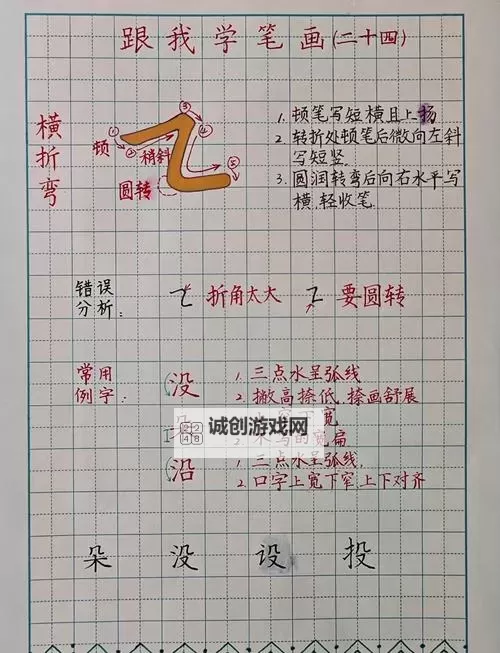 跟我学笔画(二十四)
横折弯
① 顿 ② 稍斜 ③ ④ ⑤ 圆转
1. 顿笔写短横且上扬
2. 转折处顿笔后微向左斜
写短竖
3. 圆润转弯后向右水平写
横,轻收笔
错误
分析:
折角太大 要圆转
常用
例字:
没
1. 三点水呈弧线
2. 撇高捺低,捺画舒展
朵
诚创游戏网
2 2
4 8
沿
1. 三点水呈弧线,
2. 口字上宽下窄,上下对齐
朵 没 设 投